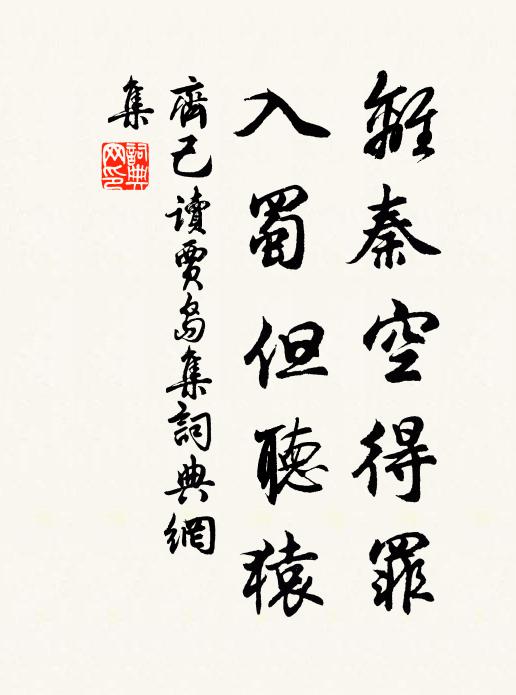 離秦空得罪
入蜀但聽猿
齊己讀賈島集詞典網
集
詞典
网印